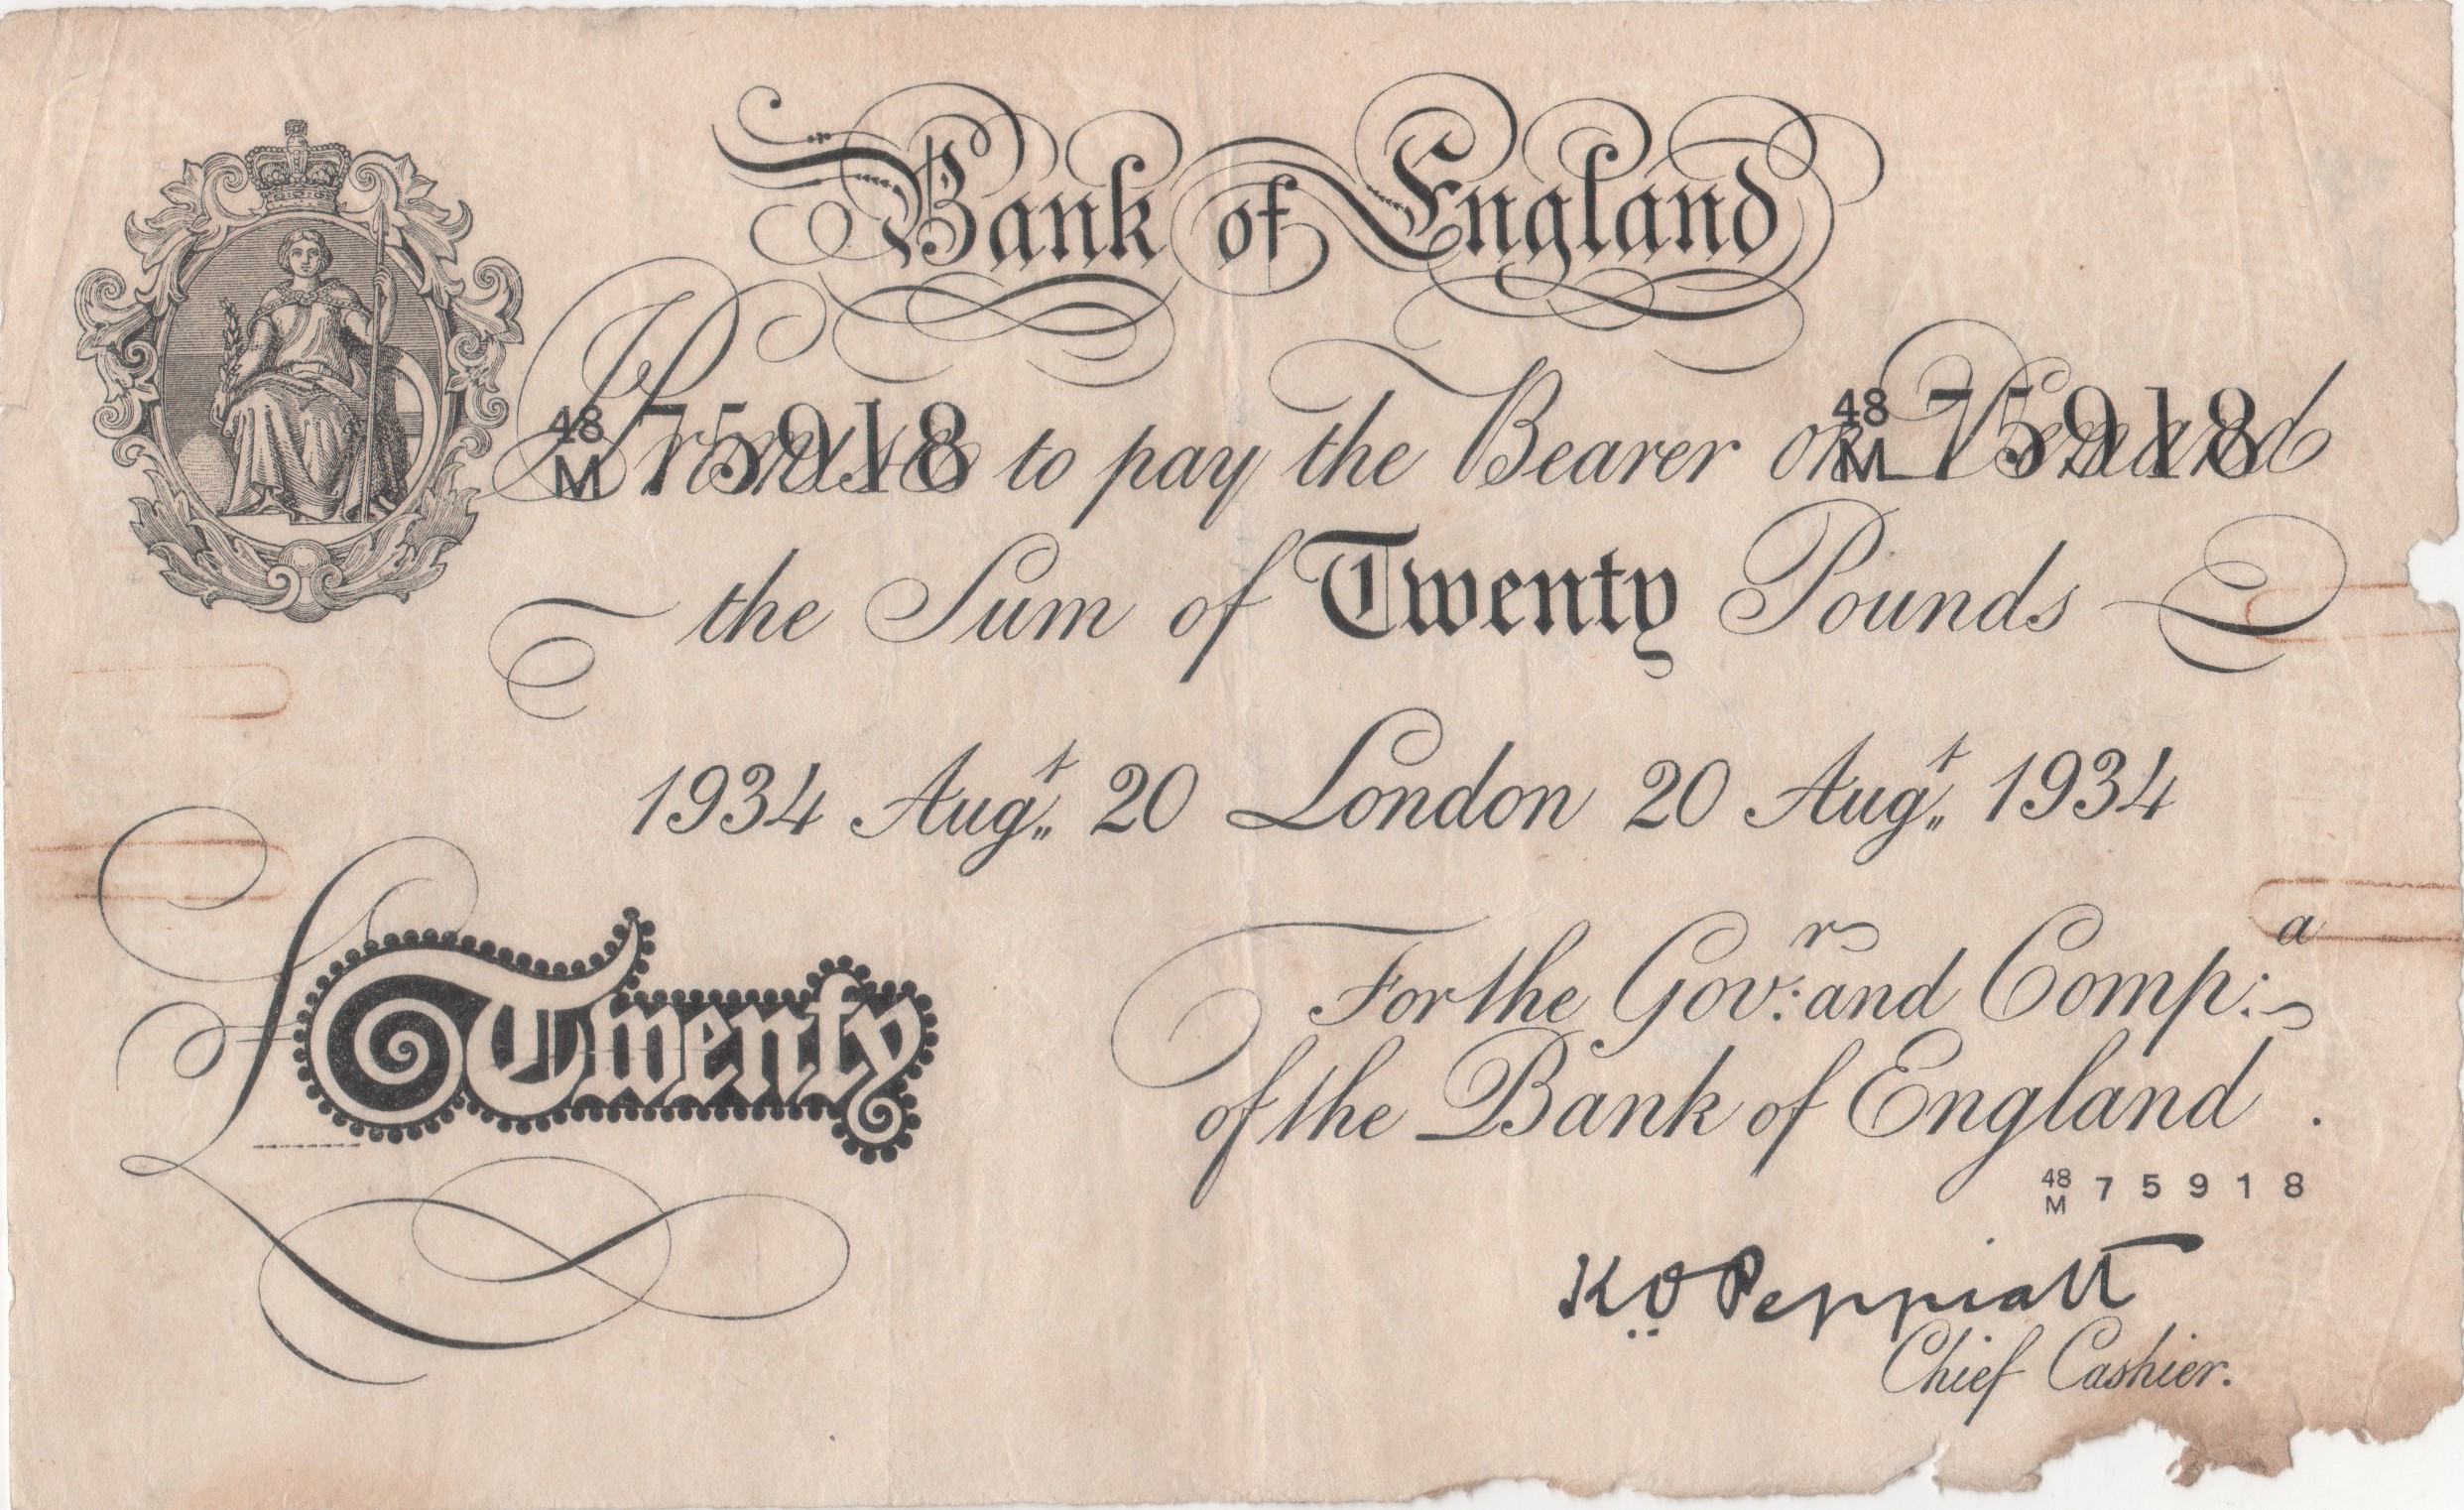 Bank of England
48/M 75918 48/M 75918
Promise to pay the Bearer on Demand
the Sum of Twenty Pounds
1934 Augt 20 London 20 Augt 1934
Twenty
For the Govr: and Compa:
of the Bank of England.
48/M 75918
K.O. Peppiatt
Chief Cashier.